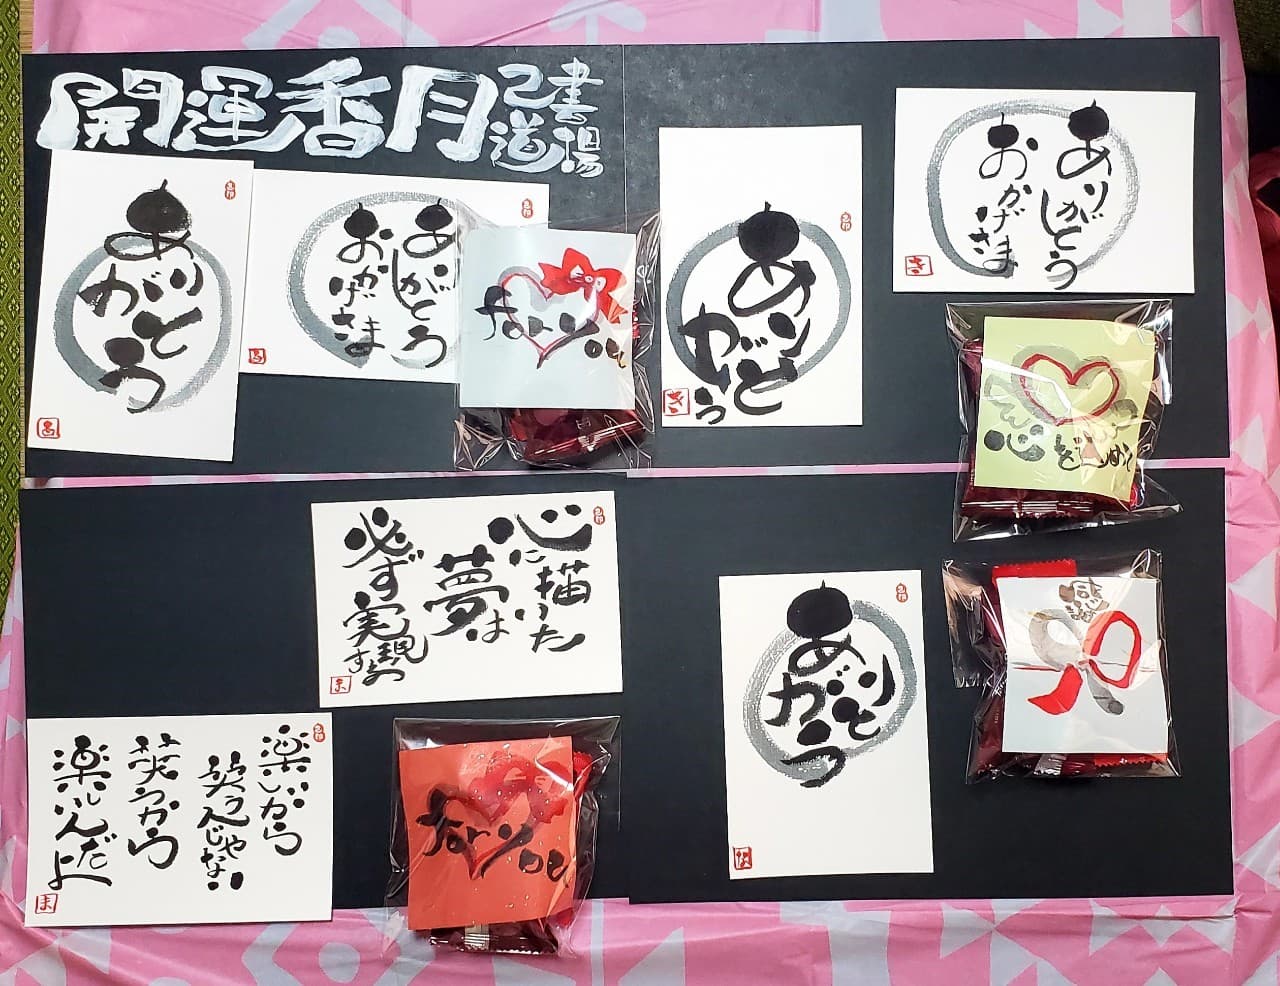 開運香月己書道場
ありがとう
ありがとう
おかげさま
for you
ありがとう
ありがとう
おかげさま
心をこめて
心に描いた
夢は
必ず実現する
ま
楽しいから
笑うんじゃない
笑うから
楽しいんだよ
ま
for you
ありがとう
な
感謝